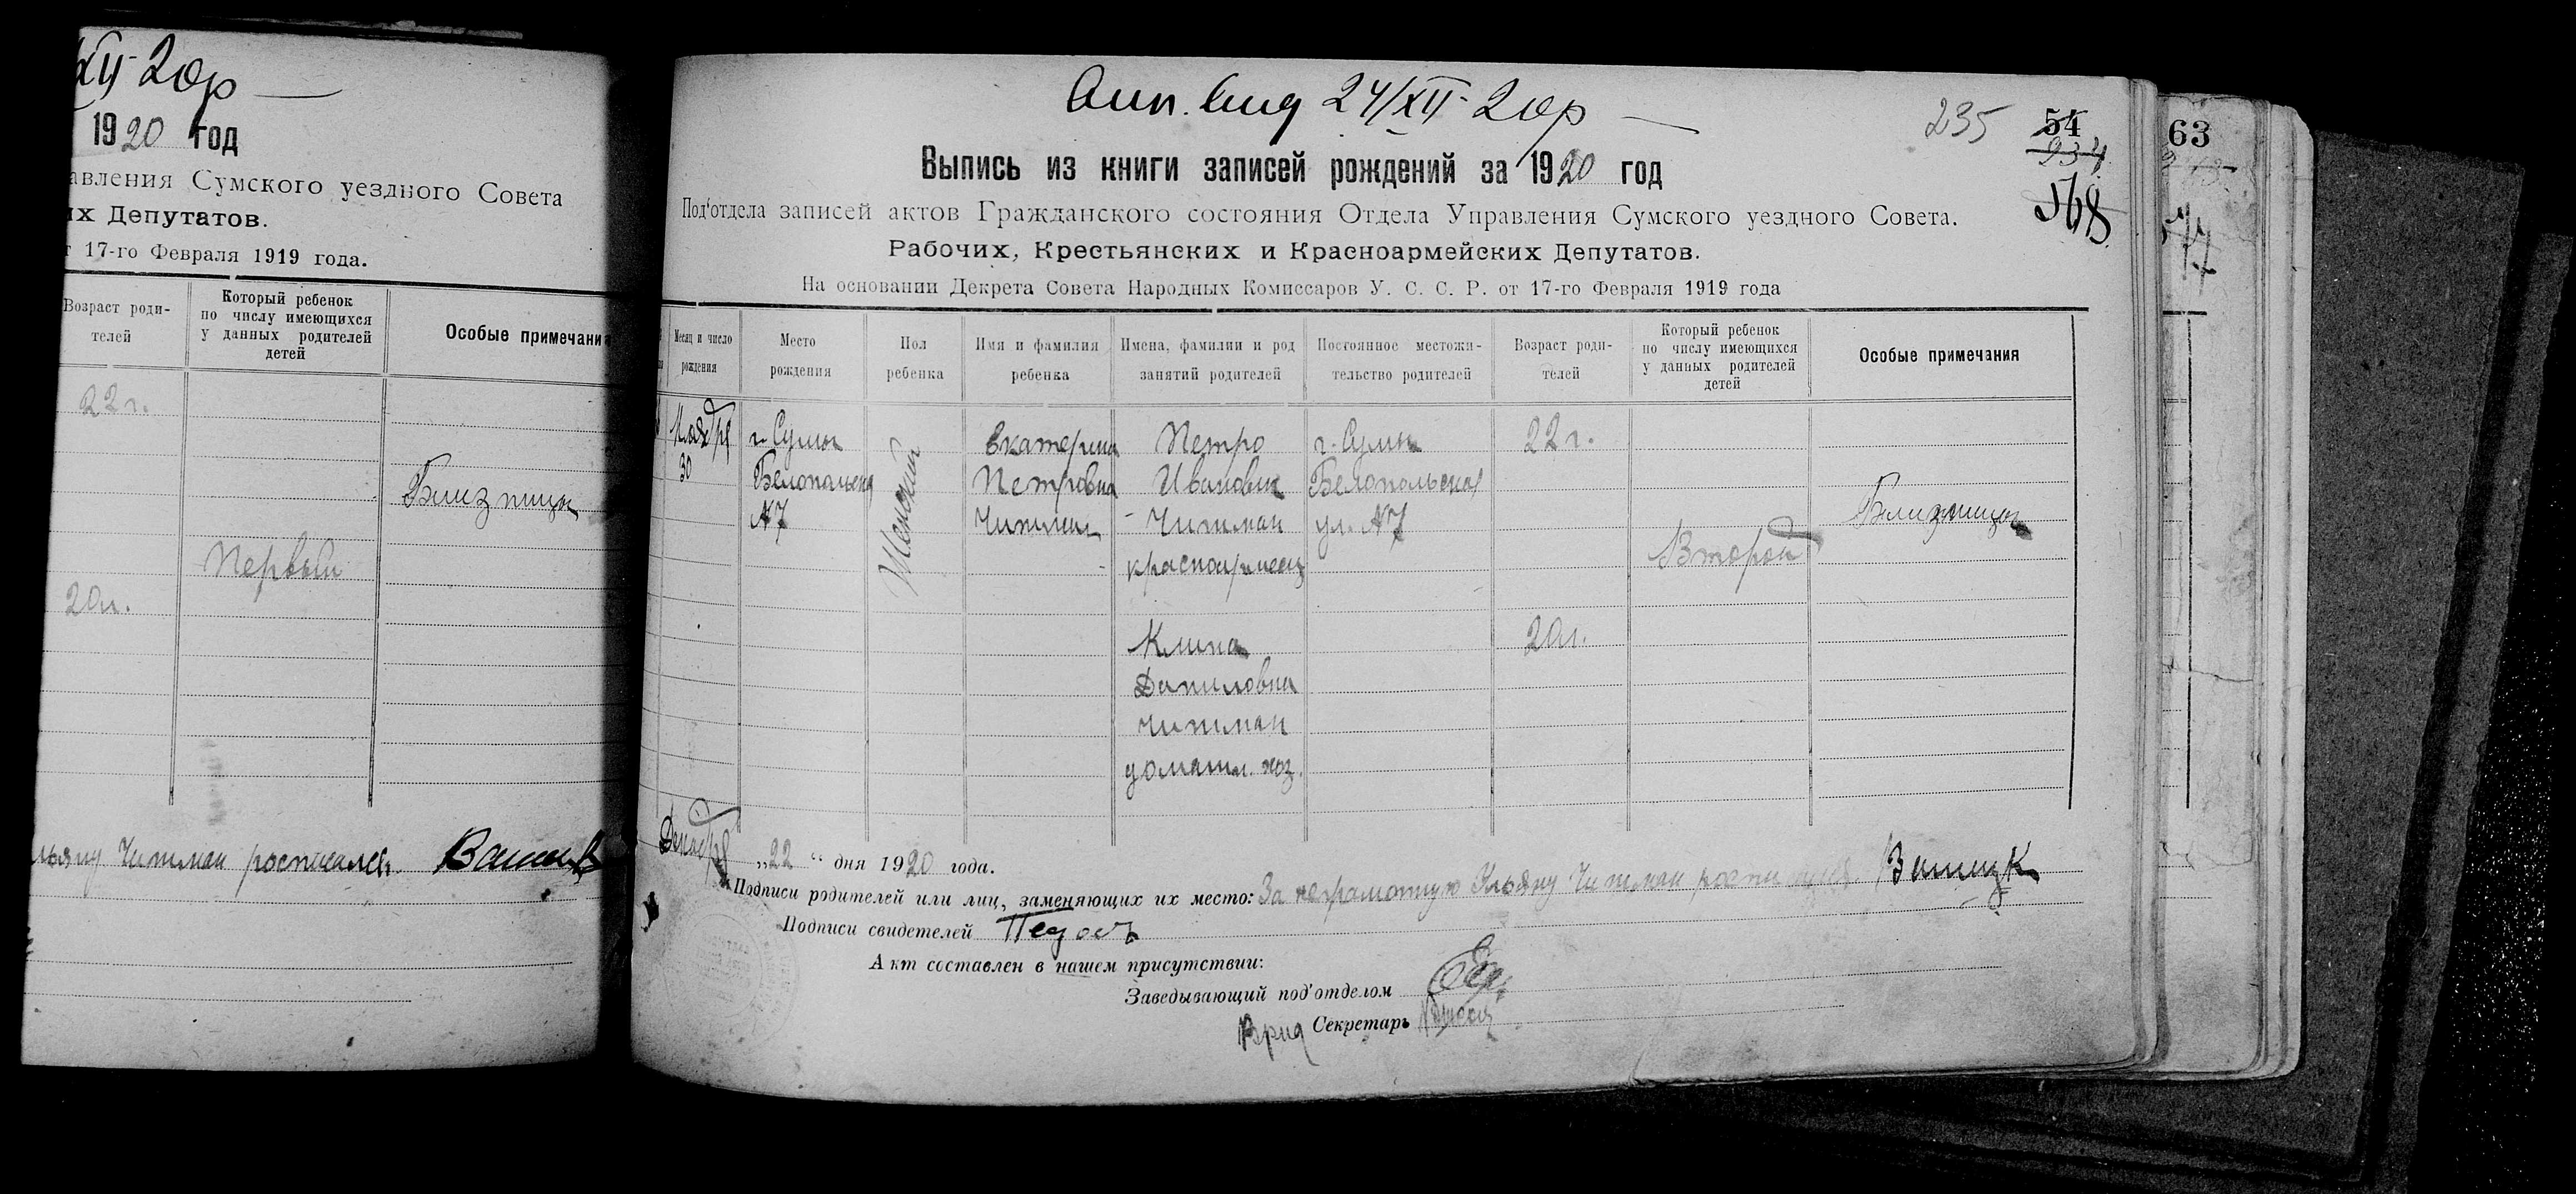 XII-20р
1920 год
авления Сумского уездного Совета
их Депутатов.
т 17-го Февраля 1919 года.
Возраст роди-
телей
Который ребенок
по числу имеющихся
у данных родителей
детей
Особые примечания
22 г.
Близница
Первый
20 л.
льяну Читман росписался.
24/XII-20р
235
54
934
568
63
Выпись из книги записей рождений за 1920 год
Под'отдела записей актов Гражданского состояния Отдела Управления Сумского уездного Совета.
Рабочих, Крестьянских и Красноармейских Депутатов.
На основании Декрета Совета Народных Комиссаров У. С. С. Р. от 17-го Февраля 1919 года
Месяц и число
рождения
Место
рождения
Пол
ребенка
Имя и фамилия
ребенка
Имена, фамилии и род
занятий родителей
Постоянное местожи-
тельство родителей
Возраст роди-
телей
Который ребенок
по числу имеющихся
у данных родителей
детей
Особые примечания
Ноября
30
г. Сумы
Белопольская
№7
Женский
Екатерина
Петровна
Читман
Петро
Иванович
Читман
красноармеец
г. Сумы
Белопольская
ул. №7
22 г.
Второй
Близница
Даниловна
Читман
домашн. хоз.
20 г.
Декабря „22“ дня 1920 года.
Подписи родителей или лиц, заменяющих их место: За неграмотную Ульяну Читман росписался
Подписи свидетелей
Акт составлен в нашем присутствии:
Заведывающий под'отделом
Врид Секретарь